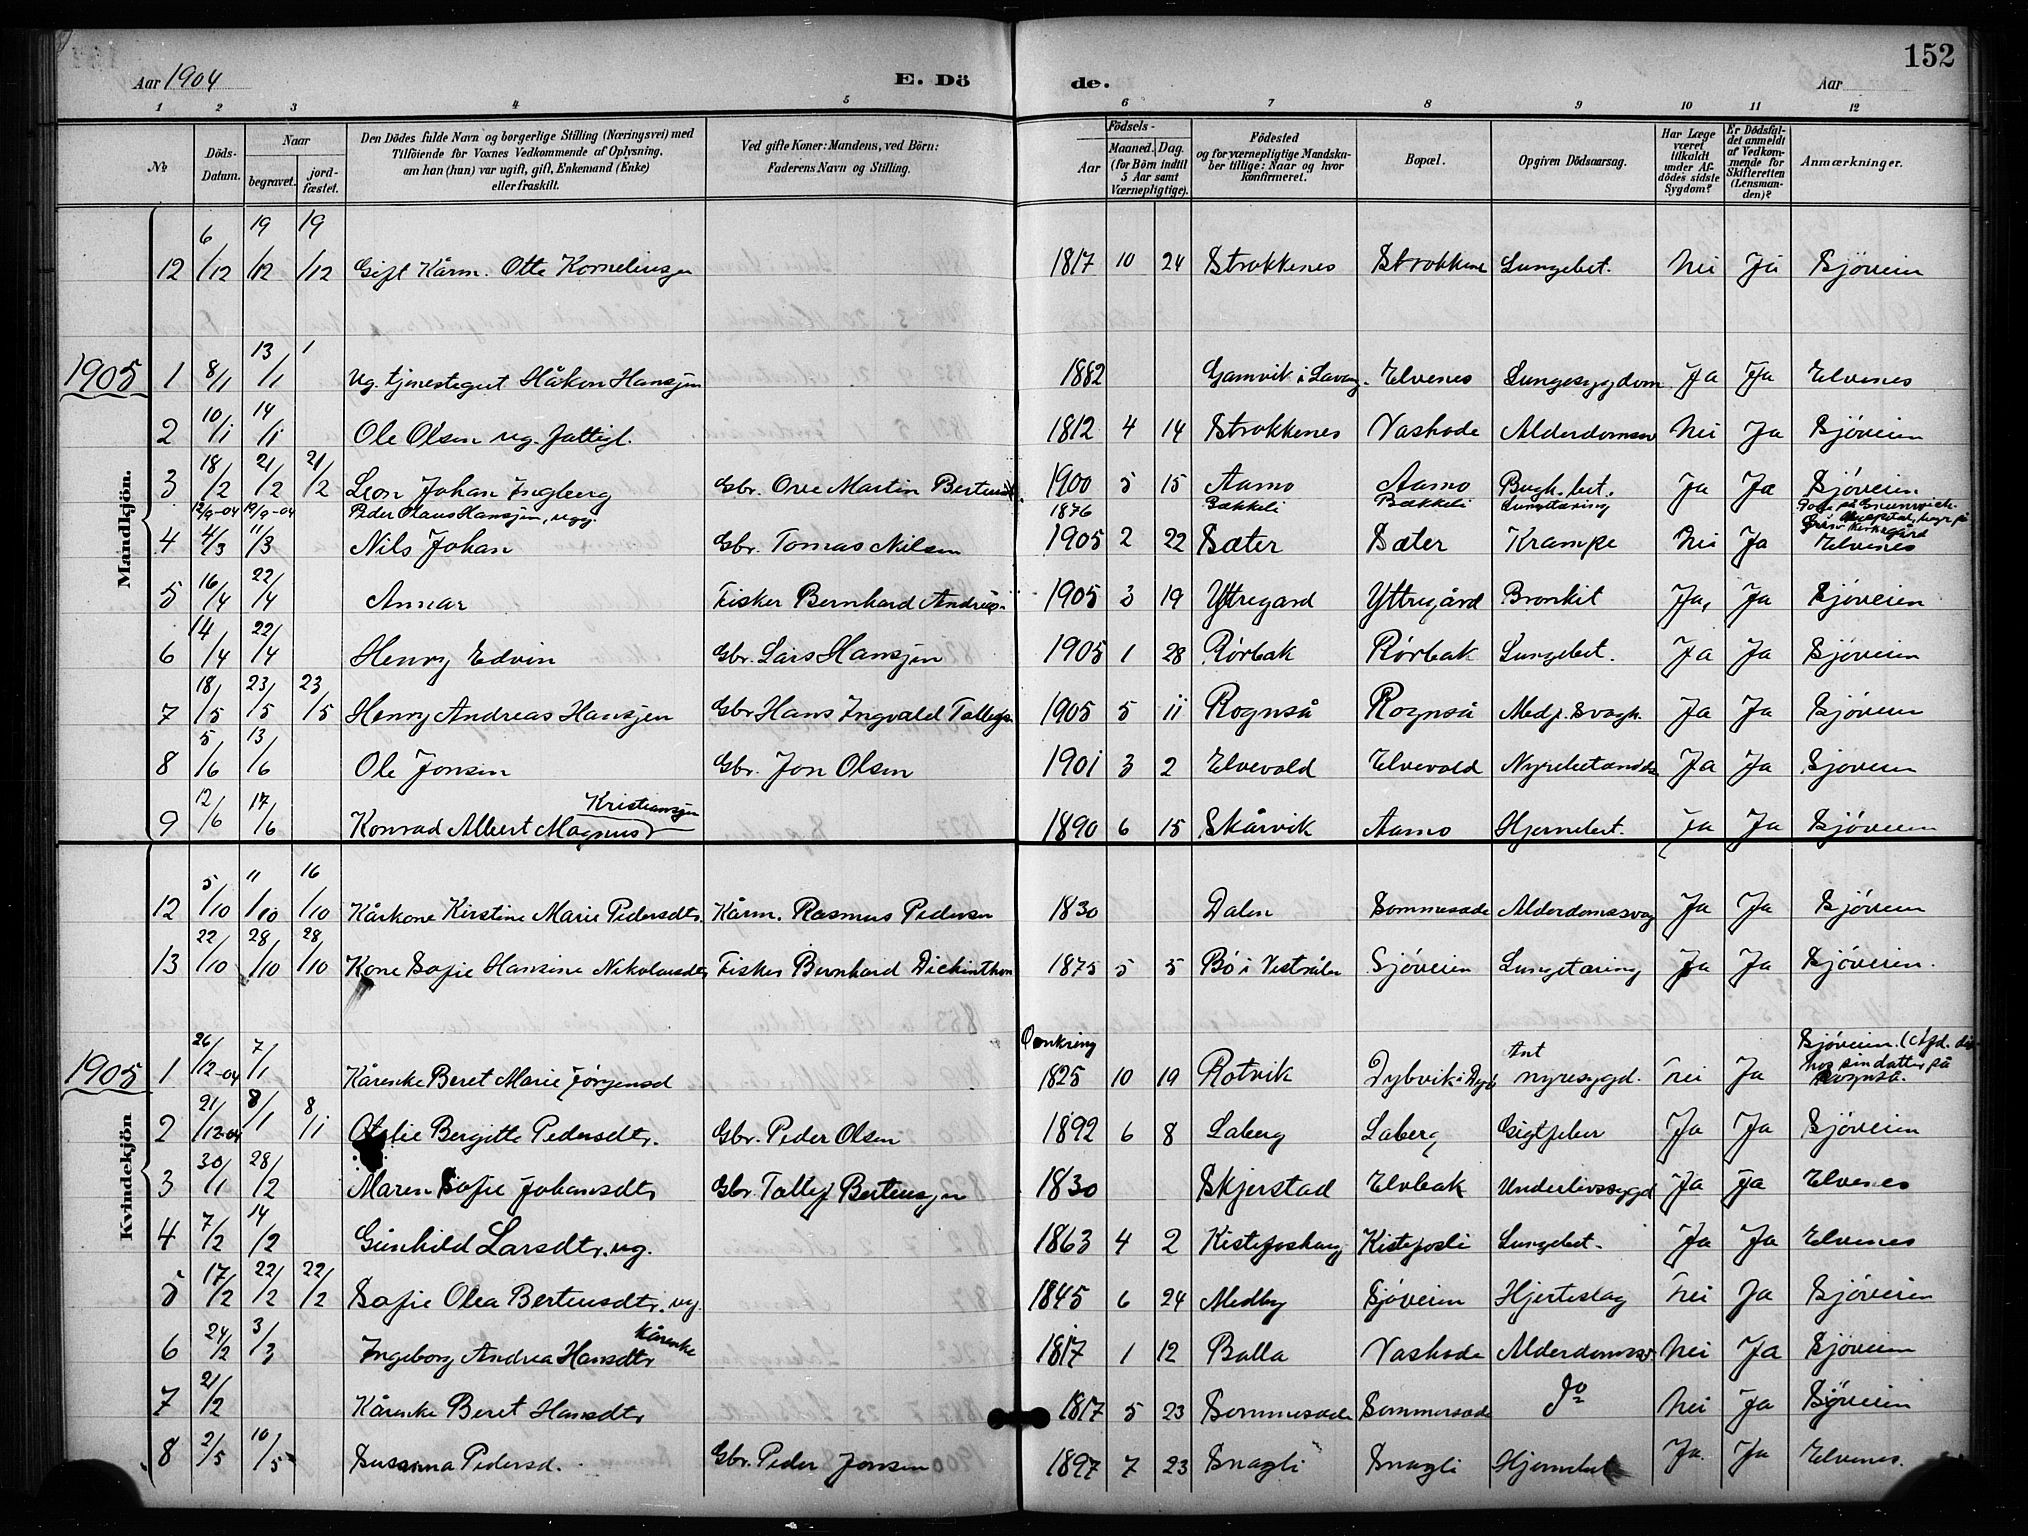 152
Aar 1904 E. Döde. Aar
1 2 3 4 5 6 7 8 9 10 11 12
No
Döds-Datum.
Naar
begravet.
jord-fæstet.
Den Dödes fulde Navn og borgerlige Stilling (Næringsvei) med
Tilföiende for Voxnes Vedkommende af Oplysning,
om han (hun) var ugift, gift, Enkemand (Enke)
eller fraskilt.
Ved gifte Koner: Mandens, ved Börn:
Faderens Navn og Stilling.
Födsels-
Aar
Maaned. Dag.
(for Börn indtil
5 Aar samt
Værnepligtige).
Födested
og for værnepligtige Mandska-
ber tillige: Naar og hvor
konfirmeret.
Bopæl.
Opgiven Dödsaarsag.
Har Læge
været
tilkaldt
under Af-
dödes sidste
Sygdom?
Er Dödsfal-
det anmeldt
af Vedkom-
mende for
Skifteretten
(Lensman-
den)?
Anmærkninger.
Mandkjön.
12 6/12 19/12 19/12 Gift Kårm. Otte Korneliusen 1817 10 24 Strokkenes Strokkene Lungebet. Nei Ja Sjöveien
1905 1 8/1 13/1 1 Ug. tjenestegut Håkon Hansjen 1882 Gamvik i Lavang. Elvenes Lungesygdom Ja Ja Elvenes
2 10/1 14/1 Ole Olsen ug. fattigl. 1812 4 14 Strokkenes Vashode Alderdomssv Nei Ja Sjöveien
3 18/2 21/2 21/2 Leon Johan Ingberg Gbr. Ove Martin Bertens 1900 5 15 Aamo Aamo Bugh.bet. Ja Ja Sjöveien
12/9-04 19/9-04 Peder Olaus Hansjen, ug. 1876 Bækkeli Bækkeli Lungetæring Döde på Greenwich
4 4/3 11/3 Nils Johan Gbr. Tomas Nilsen 1905 2 22 Sæter Sæter Krampe Nei Ja Elvenes
5 16/4 22/4 Annar Fisker Bernhard Andreas. 1905 3 19 Yttregard Yttregård Bronkit Ja, Ja Sjöveien
6 14/4 22/4 Henry Edvin Gbr. Lars Hansjen 1905 1 28 Rörbak Rörbak Lungebet. Ja Ja Sjöveien
7 18/5 23/5 23/5 Henry Andreas Hansjen Gbr Hans Ingvald Tollefs. 1905 5 11 Rognså Rognså Medf. Svagh. Ja Ja Sjöveien
8 5/6 13/6 Ole Jonsen Gbr. Jon Olsen 1901 3 2 Elvevold Elvevold Nyrebetændde Ja Ja Sjöveien
9 12/6 17/6 Konrad Albert Magnus Kristiansjen 1890 6 15 Skårvik Aamo Hjernebet. Ja Ja Sjöveien
Kvindekjön
12 5/10 11/10 16/10 Kårkone Kirstine Marie Pedersdtr. Kårm. Rasmus Pedersen 1830 Dalen Sommesæde Alderdomssvag Ja Ja Sjöveien
13 22/10 28/10 28/10 Kone Sofie Hansine Nikolausdtr Fisker Bernhard Dickinthon 1875 5 5 Bö i Vestrålen Sjöveien Lungetæring Ja Ja Sjöveien.
1905 1 26/12-04 7/1 Kårenke Beret Marie Jörgensd Omkring 1825 10 19 Rotvik Dybvik i Dyrö Ant nyresygd. Nei Ja Sjöveien. (Afd. dö hos sin datter på Rognså.
2 21/12-04 8/1 8/1 Otelie Bergitte Pedersdtr. Gbr. Peder Olsen 1892 6 8 Laberg Laberg Gigtfeber Ja Ja Sjöveien
3 30/1 28/2 Maren Sofie Johansdtr Gbr. Tollef Bertensjen 1830 Skjerstad Elvbak Underlivssygd Ja Ja Elvenes
4 7/2 14/2 Gunhild Larsdtr. ug. 1863 4 2 Kistefoshaug Kistefosli Lungebet. Ja Ja Elvenes
5 17/2 22/2 22/2 Sofie Olea Bertensdtr. ug. 1845 6 24 Medby Sjöveien Hjerteslag Nei Ja Sjöveien
6 24/2 3/3 Ingeborg Andrea Hansdtr Kårenke 1817 1 12 Balla Vashode Alderdomssv Nei Ja Sjöveien
7 21/2 Kårenke Beret Hansdtr 1817 5 23 Sommesæde Sommersæde Do Nei Ja Sjöveien
8 2/5 10/5 Sussana Pedersd. Gbr. Peder Jonsen 1897 7 23 Snagli Snagli Hjernebet Ja Ja Elvenes.